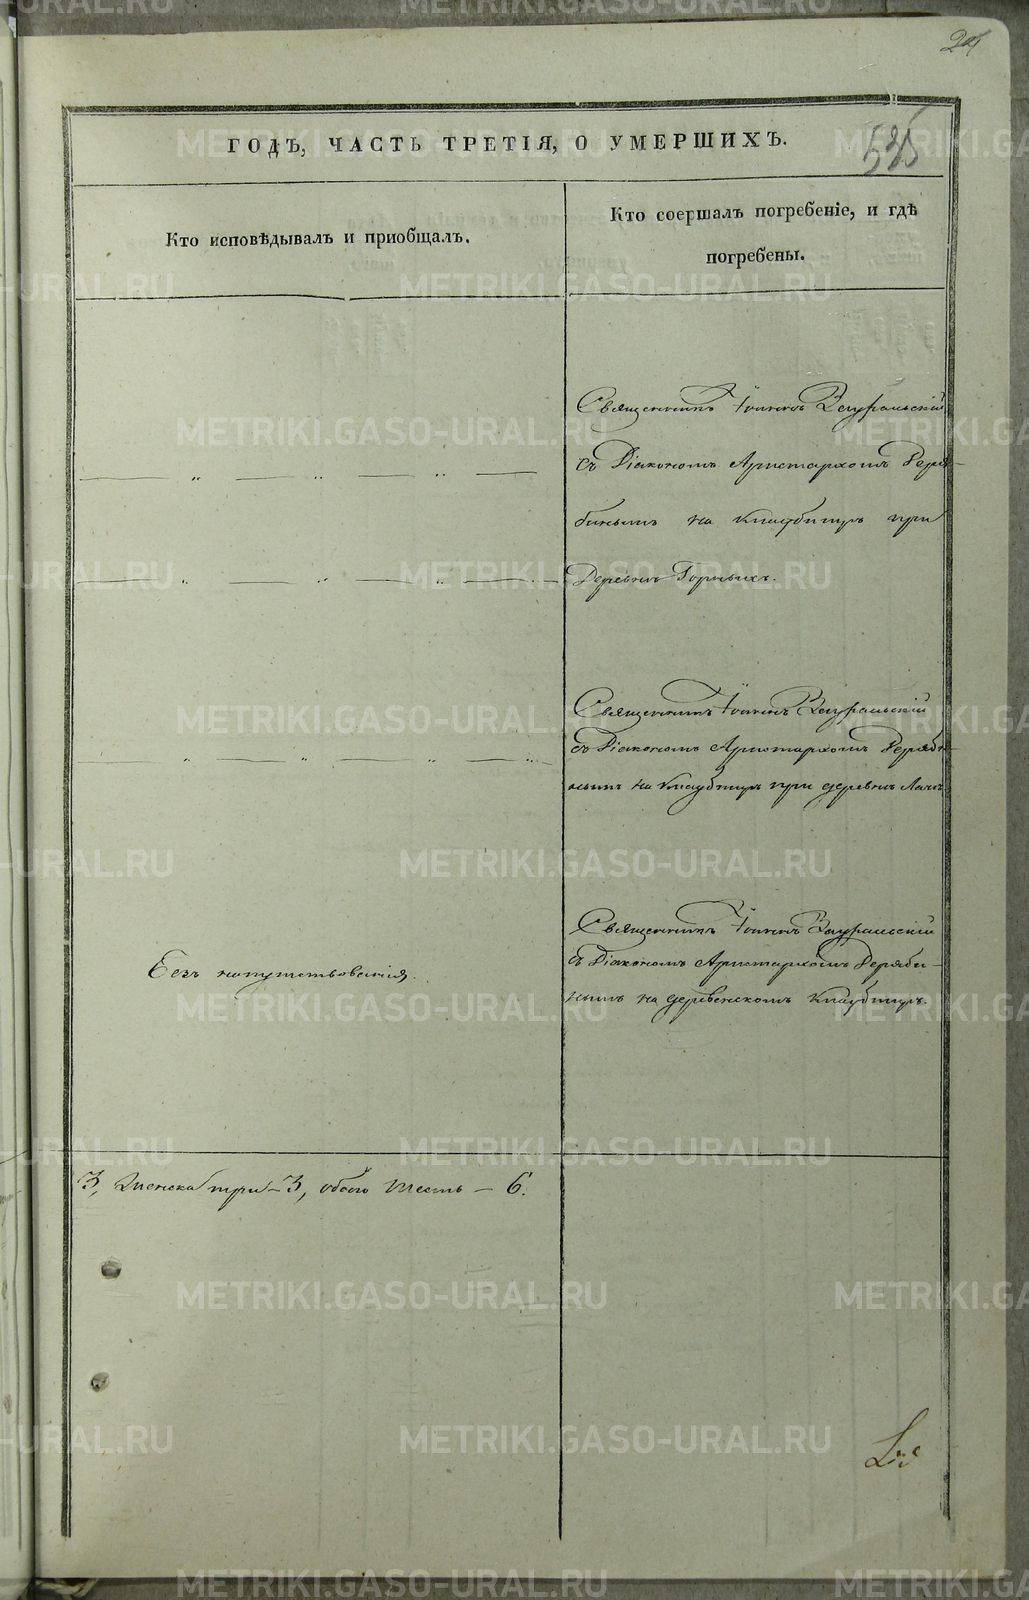 24
525
ГОДЪ, ЧАСТЬ ТРЕТІЯ, О УМЕРШИХЪ.
Кто исповѣдывалъ и приобщалъ.
Кто соершалъ погребеніе, и гдѣ
погребены.
Священникъ Іоаннъ Зауральскій
съ Діакономъ Аристархомъ Деря-
бинымъ на кладбищѣ при
Деревнѣ
Священникъ Іоаннъ Зауральскій
съ Діакономъ Аристархомъ Деряби-
нымъ на кладбищѣ при деревнѣ
Священникъ Іоаннъ Зауральскій
съ Діакономъ Аристархомъ Деряби-
нымъ на деревенскомъ кладбищѣ.
Безъ напутствованія.
3, Женска три - 3, обоего шесть - 6.
METRIKI.GASO-URAL.RU